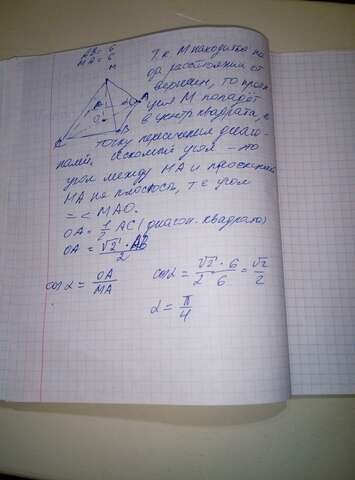 AB = 6
MA = 6
M
Т.к М находится на
да расстоянии от
вершин, то проек
ция М попадёт
в центр квадрата, в
точку пересечения диаго-
налей. Искомый угол - это
угол между МА и проекцией
МА на плоскость, т.е угол
= < MAO.
OA = 1/2 AC (диагон. квадрата)
OA = √2 · AB / 2
cos α = OA / MA
cos α = √2 · 6 / 2 · 6 = √2 / 2
α = π / 4